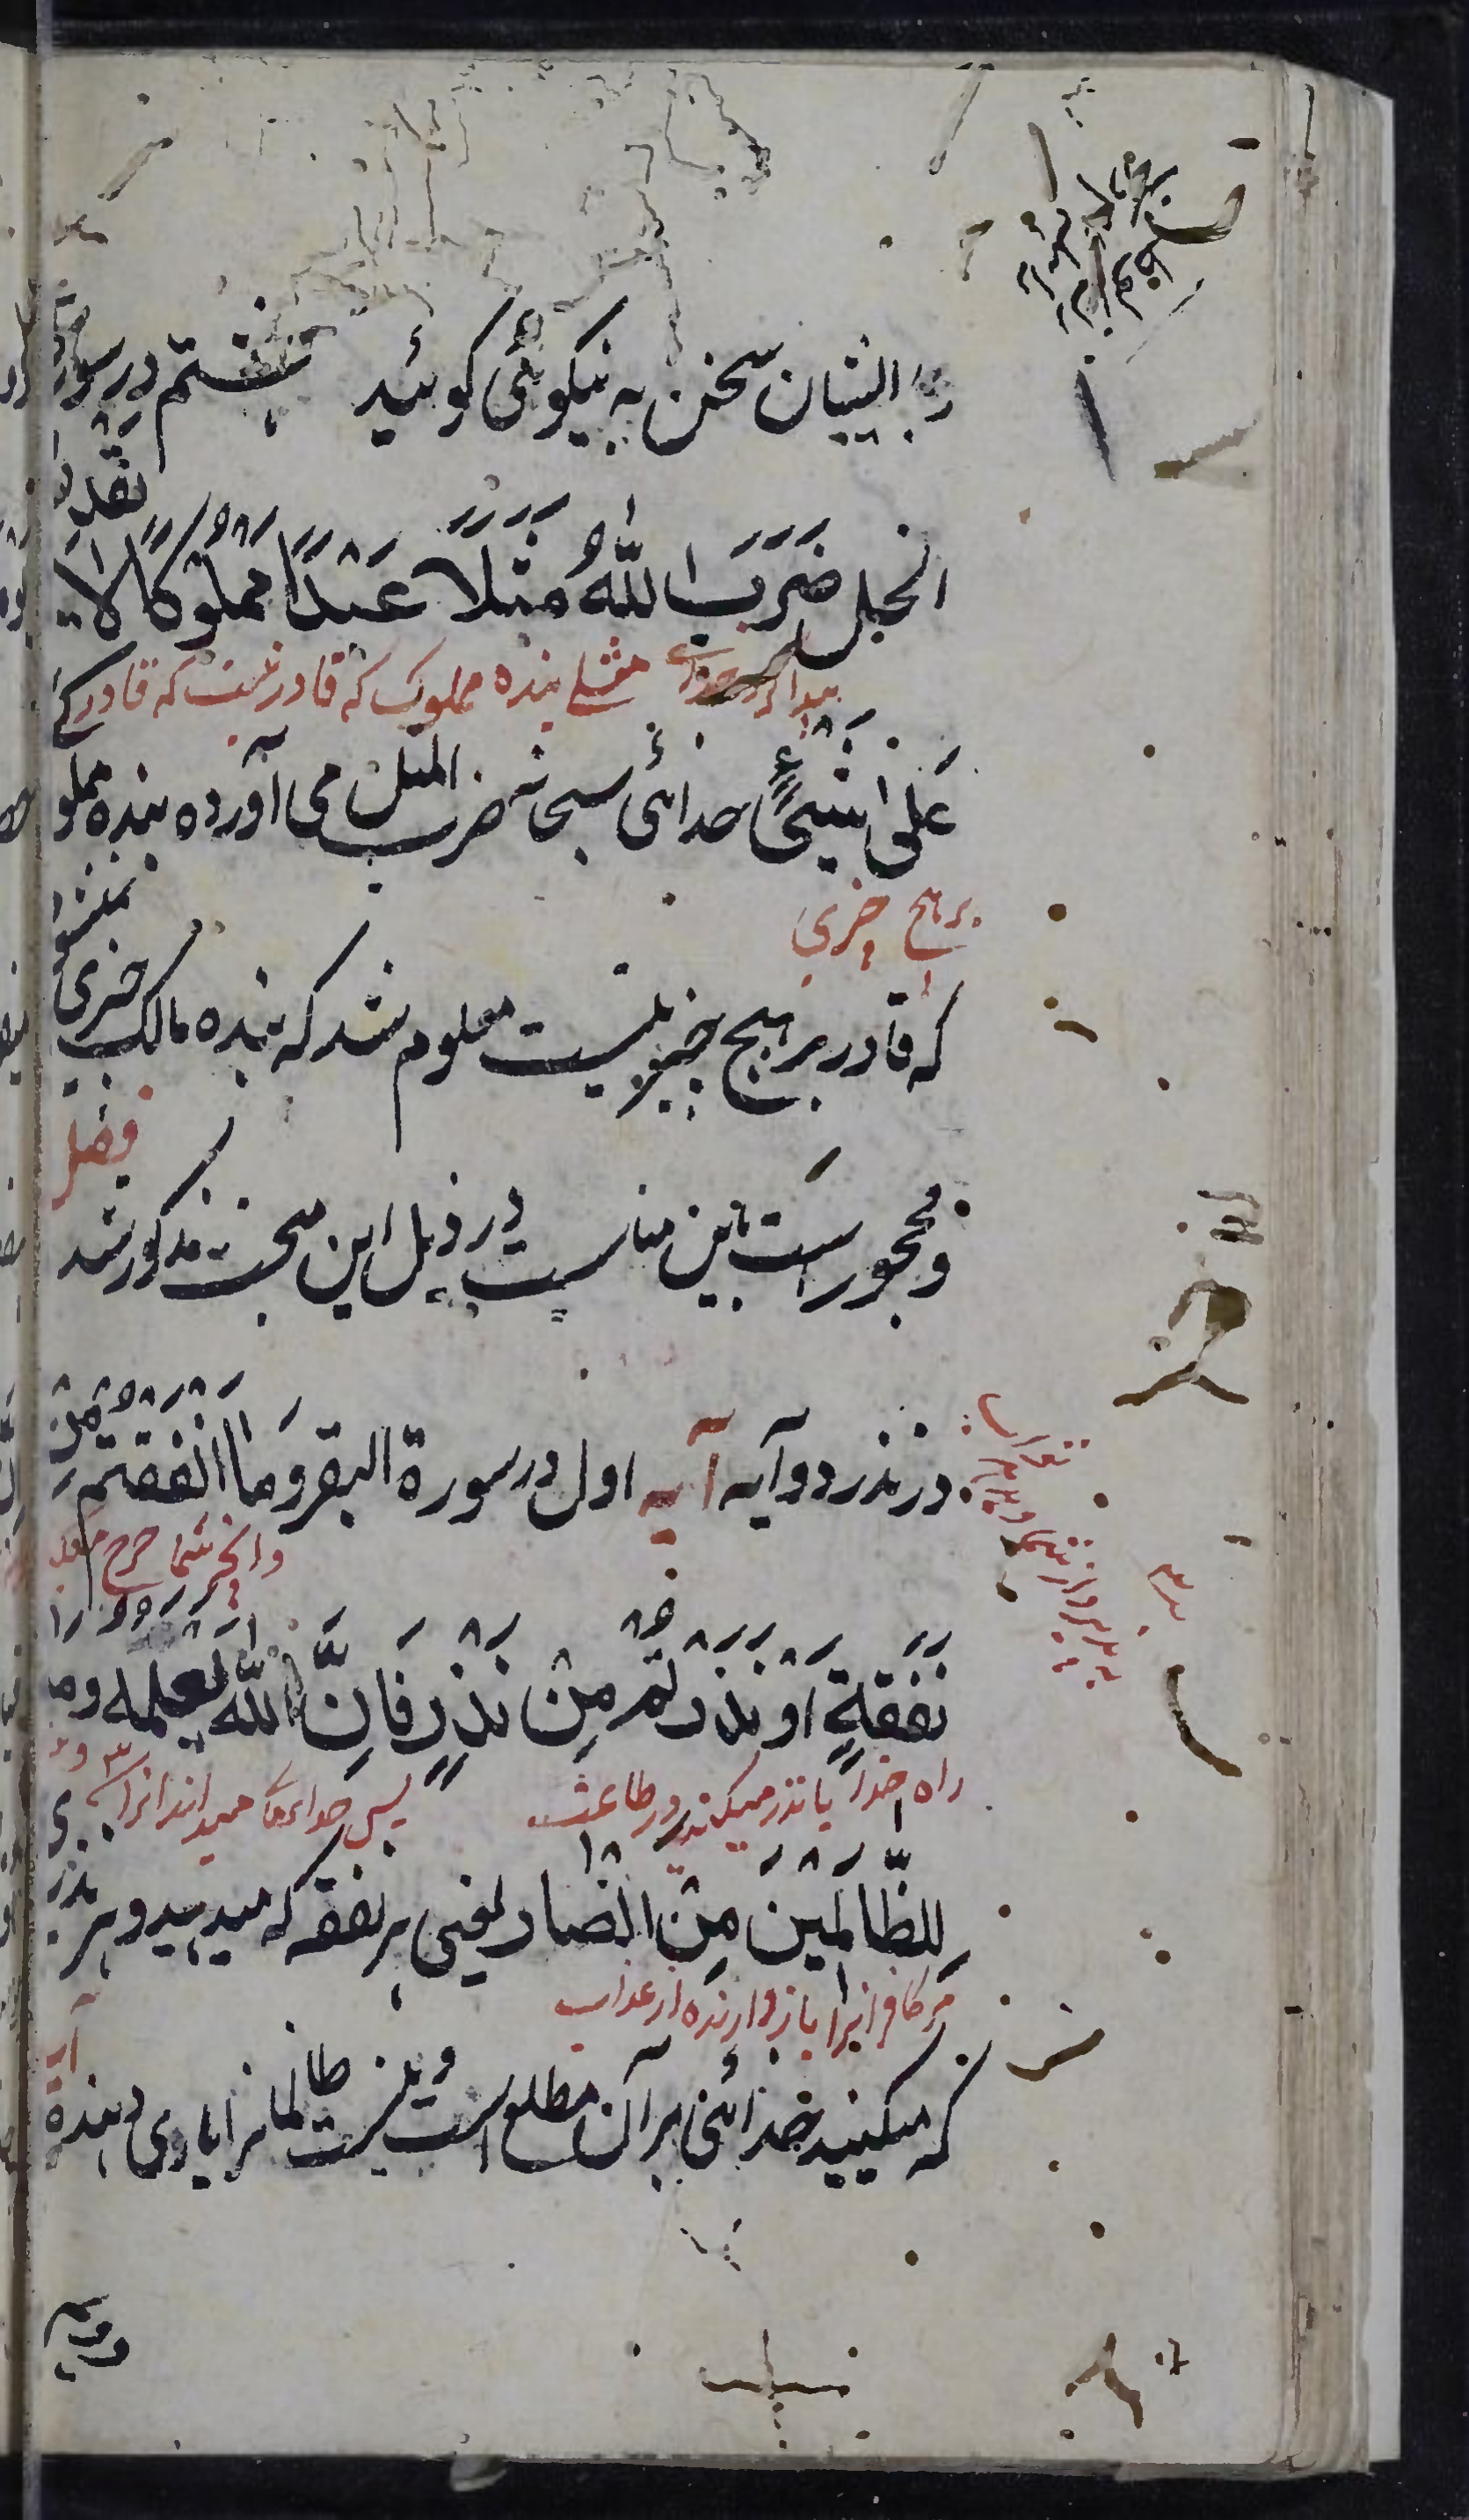 با ایشان سخن به نیکوئی گوئید هشتم در سورة
النحل ضَرَبَ اللّٰهُ مَثَلًا عَبْدًا مَمْلُوکًا لَا یَقْدِرُ
مثلی بنده مملوک که قادر نیست که قادر
عَلٰی شَیْءٍ خدائی سبحانه ضرب المثل می آورده بنده مملو
بر هیچ چیزی
که قادر بر هیچ چیز نیست معلوم شد که بنده مالک چیزی نمیشود
و محجور است باین مناسبت در ذیل این مبحث مذکور شد
فصل
در نذر دو آیه آیه اول در سورة البقر وَمَا اَنْفَقْتُمْ مِنْ
وانچه شما خرج میکنید
نَفَقَةٍ اَوْ نَذَرْتُمْ مِنْ نَذْرٍ فَاِنَّ اللّٰهَ یَعْلَمُهُ وَمَا
راه خدا یا نذر میکنید در طاعت پس خدای میداند انرا
لِلظَّالِمِیْنَ مِنْ اَنْصَارٍ یعنی هر نفقه که میدهید و هر نذر
مر کافرانرا باز دارنده از عذاب
که میکنید خدائی بر آن مطلع است و نیست ظالمانرا یاری دهنده
آیه
دویم